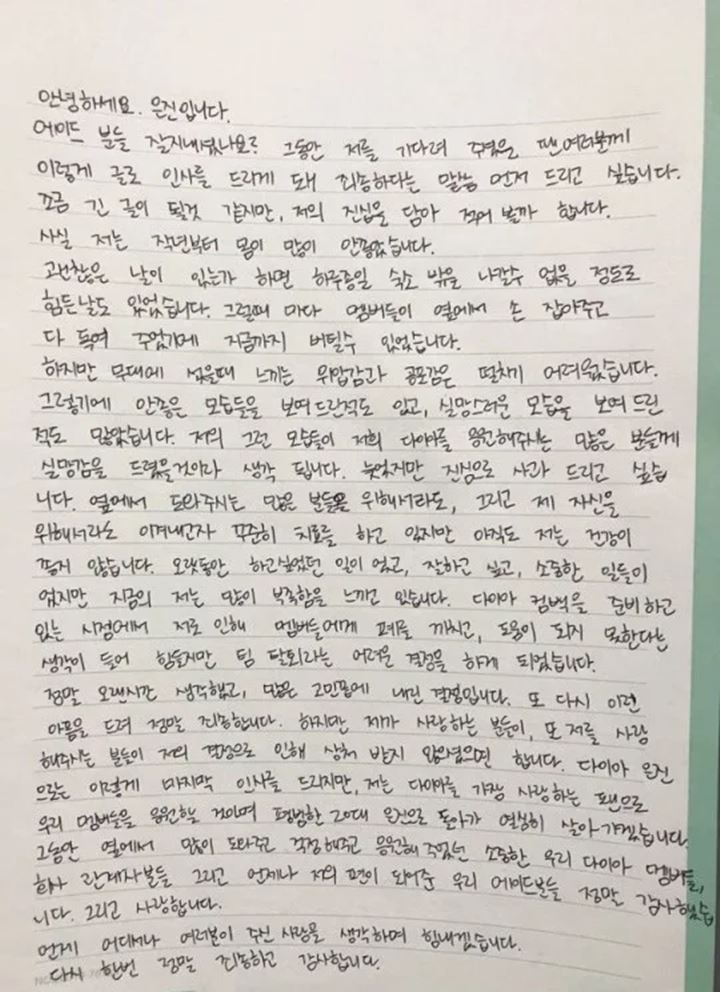 안녕하세요. 은진입니다.
에이드 분들 잘지내셨나요? 그동안 저를 기다려 주셨을 팬여러분께
이렇게 글로 인사를 드리게 돼 죄송하다는 말씀 먼저 드리고 싶습니다.
조금 긴 글이 될것 같지만, 저의 진심을 담아 적어 볼까 합니다.
사실 저는 작년부터 몸이 많이 안좋았습니다.
괜찮은 날이 있는가 하면 하루종일 숙소 밖을 나갈수 없을 정도로
힘든날도 있었습니다. 그럴때 마다 멤버들이 옆에서 손 잡아주고
다 독여 주었기에 지금까지 버틸수 있었습니다.
하지만 무대에 섰을때 느끼는 위압감과 공포감은 떨치기 어려웠습니다.
그렇기에 안좋은 모습들을 보여드린적도 있고, 실망스러운 모습을 보여 드린
적도 많았습니다. 저의 그런 모습들이 저희 다이아를 응원해주시는 많은 분들께
실망감을 드렸을것이라 생각 됩니다. 늦었지만 진심으로 사과 드리고 싶습
니다. 옆에서 도와주시는 많은 분들을 위해서라도, 그리고 제 자신을
위해서라도 이겨내고자 꾸준히 치료를 하고 있지만 아직도 저는 건강이
좋지 않습니다. 오랫동안 하고싶었던 일이 었고, 잘하고 싶고, 소중한 일들이
었지만 지금의 저는 많이 부족함을 느끼고 있습니다. 다이아 컴백을 준비하고
있는 시점에서 저로 인해 멤버들에게 폐를 끼치고, 도움이 되지 못한다는
생각이 들어 힘들지만 팀 탈퇴라는 어려운 결정을 하게 되었습니다.
정말 오랜시간 생각했고, 많은 고민끝에 내린 결정입니다. 또 다시 이런
아픔을 드려 정말 죄송합니다. 하지만 제가 사랑하는 분들이, 또 저를 사랑
해주시는 분들이 저의 결정으로 인해 상처 받지 않았으면 합니다. 다이아 은진
으로는 이렇게 마지막 인사를 드리지만, 저는 다이아를 가장 사랑하는 팬으로
우리 멤버들을 응원할 것이며 평범한 20대 은진으로 돌아가 열심히 살아가겠습니다.
그동안 옆에서 많이 도와주고 걱정해주고 응원해 주었던 소중한 우리 다이아 멤버들,
회사 관계자분들 그리고 언제나 저의 편이 되어준 우리 에이드분들 정말 감사했습
니다. 그리고 사랑합니다.
언제 어디서나 여러분이 주신 사랑을 생각하며 힘내겠습니다.
다시 한번 정말 죄송하고 감사합니다.